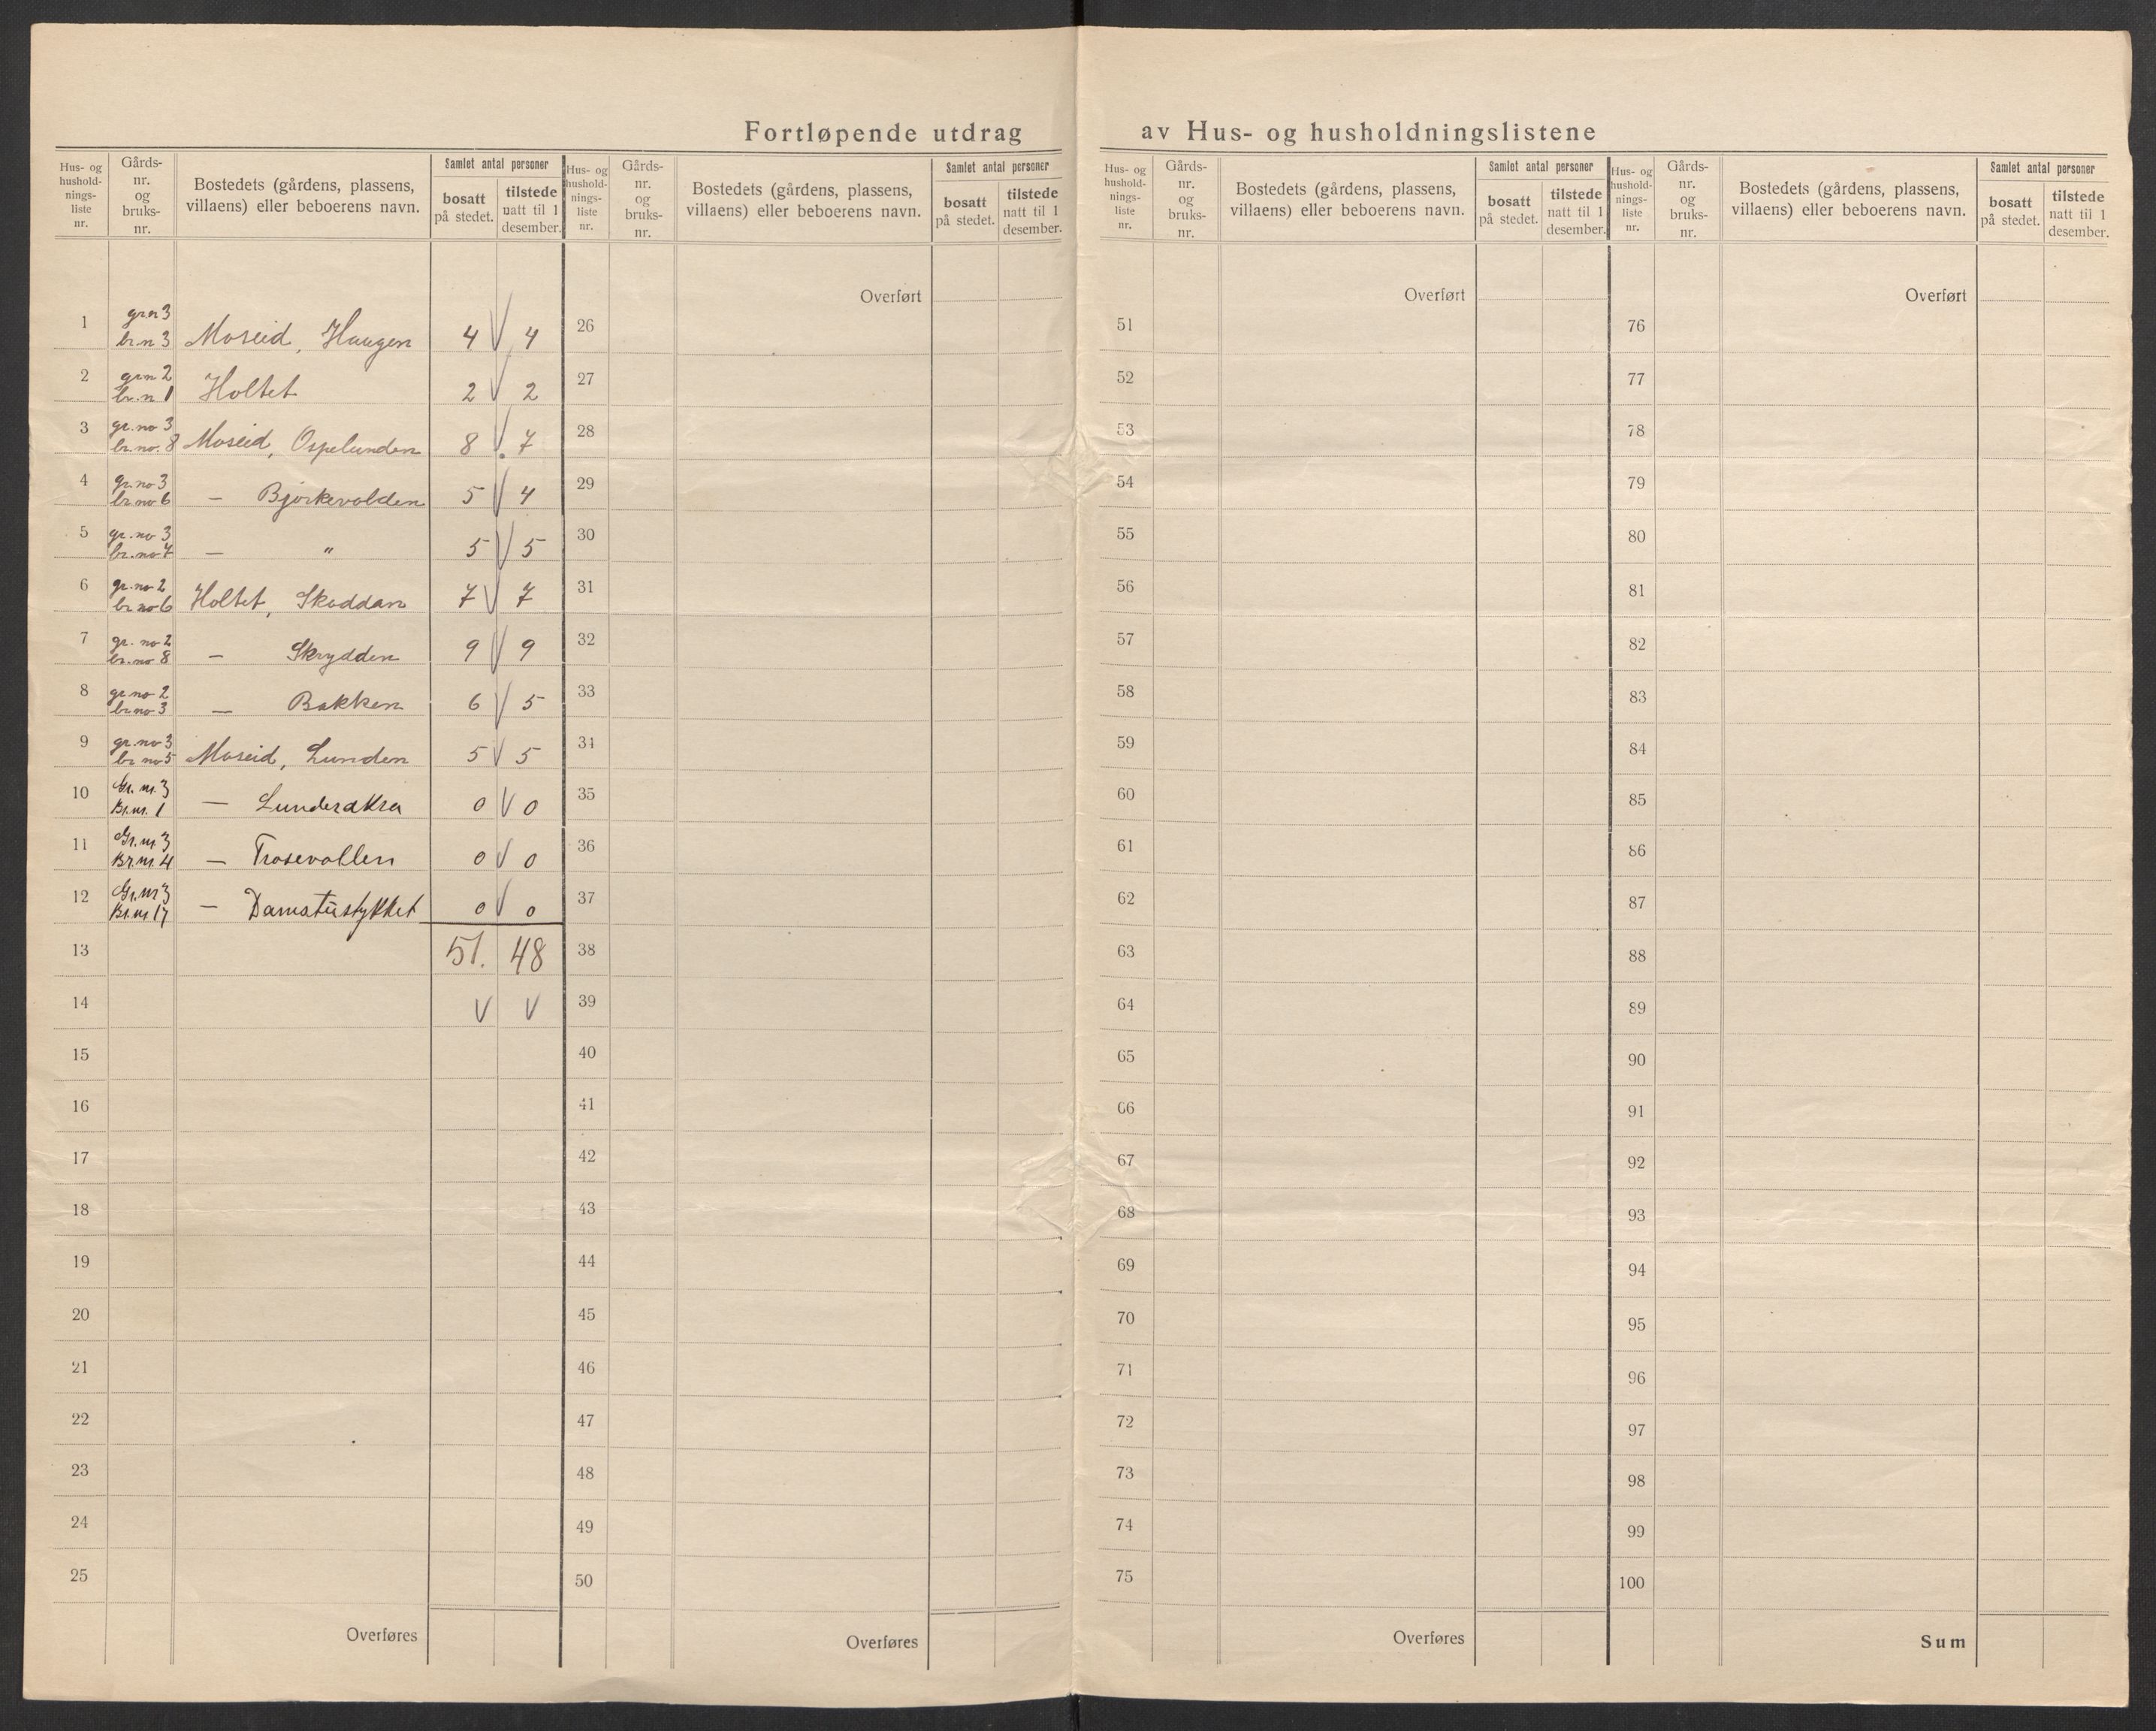 Fortløpende utdrag av Hus- og husholdningslistene
Hus- og hushold- nings- liste nr.
Gårds- nr. og bruks- nr.
Bostedets (gårdens, plassens, villaens) eller beboerens navn.
Samlet antal personer
bosatt på stedet.
tilstede natt til 1 desember.
1 gr.n 3 br.n 3 Moseid, Haugen 4 4
2 gr.n 2 br.n 1 Holtet 2 2
3 gr.no 3 br.no. 8 Moseid, Ospelunden 8 7
4 gr.no 3 br.no 6 — Bjørkevolden 5 4
5 gr.no 3 br.no 7 — " 5 5
6 gr.no 2 br.no 6 Holtet, Skoddan 7 7
7 gr.no 2 br.no 8 — Skrydden 9 9
8 gr.no 2 br.no 3 — Bakken 6 5
9 gr.no 3 br.no 5 Moseid, Lunden 5 5
10 Gr.nr. 3 Br.nr. 1 — Lunderakra 0 0
11 Gr.nr 3 Br.nr. 4 — Trosevollen 0 0
12 Gr.nr 3 Br.nr 17 — 0 0
13 51. 48
14 V V
15
16
17
18
19
20
21
22
23
24
25
Overføres
Hus- og hushold- nings- liste nr.
Gårds- nr. og bruks- nr.
Bostedets (gårdens, plassens, villaens) eller beboerens navn.
Samlet antal personer
bosatt på stedet.
tilstede natt til 1 desember.
Overført
26
27
28
29
30
31
32
33
34
35
36
37
38
39
40
41
42
43
44
45
46
47
48
49
50
Overføres
Hus- og hushold- nings- liste nr.
Gårds- nr. og bruks- nr.
Bostedets (gårdens, plassens, villaens) eller beboerens navn.
Samlet antal personer
bosatt på stedet.
tilstede natt til 1 desember.
Overført
51
52
53
54
55
56
57
58
59
60
61
62
63
64
65
66
67
68
69
70
71
72
73
74
75
Overføres
Hus- og hushold- nings- liste nr.
Gårds- nr. og bruks- nr.
Bostedets (gårdens, plassens, villaens) eller beboerens navn.
Samlet antal personer
bosatt på stedet.
tilstede natt til 1 desember.
Overført
76
77
78
79
80
81
82
83
84
85
86
87
88
89
90
91
92
93
94
95
96
97
98
99
100
Sum